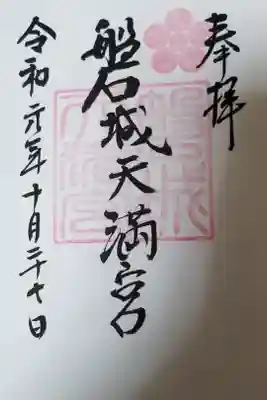 奉拝
盤石城天満宮
令和元年十月二十七日